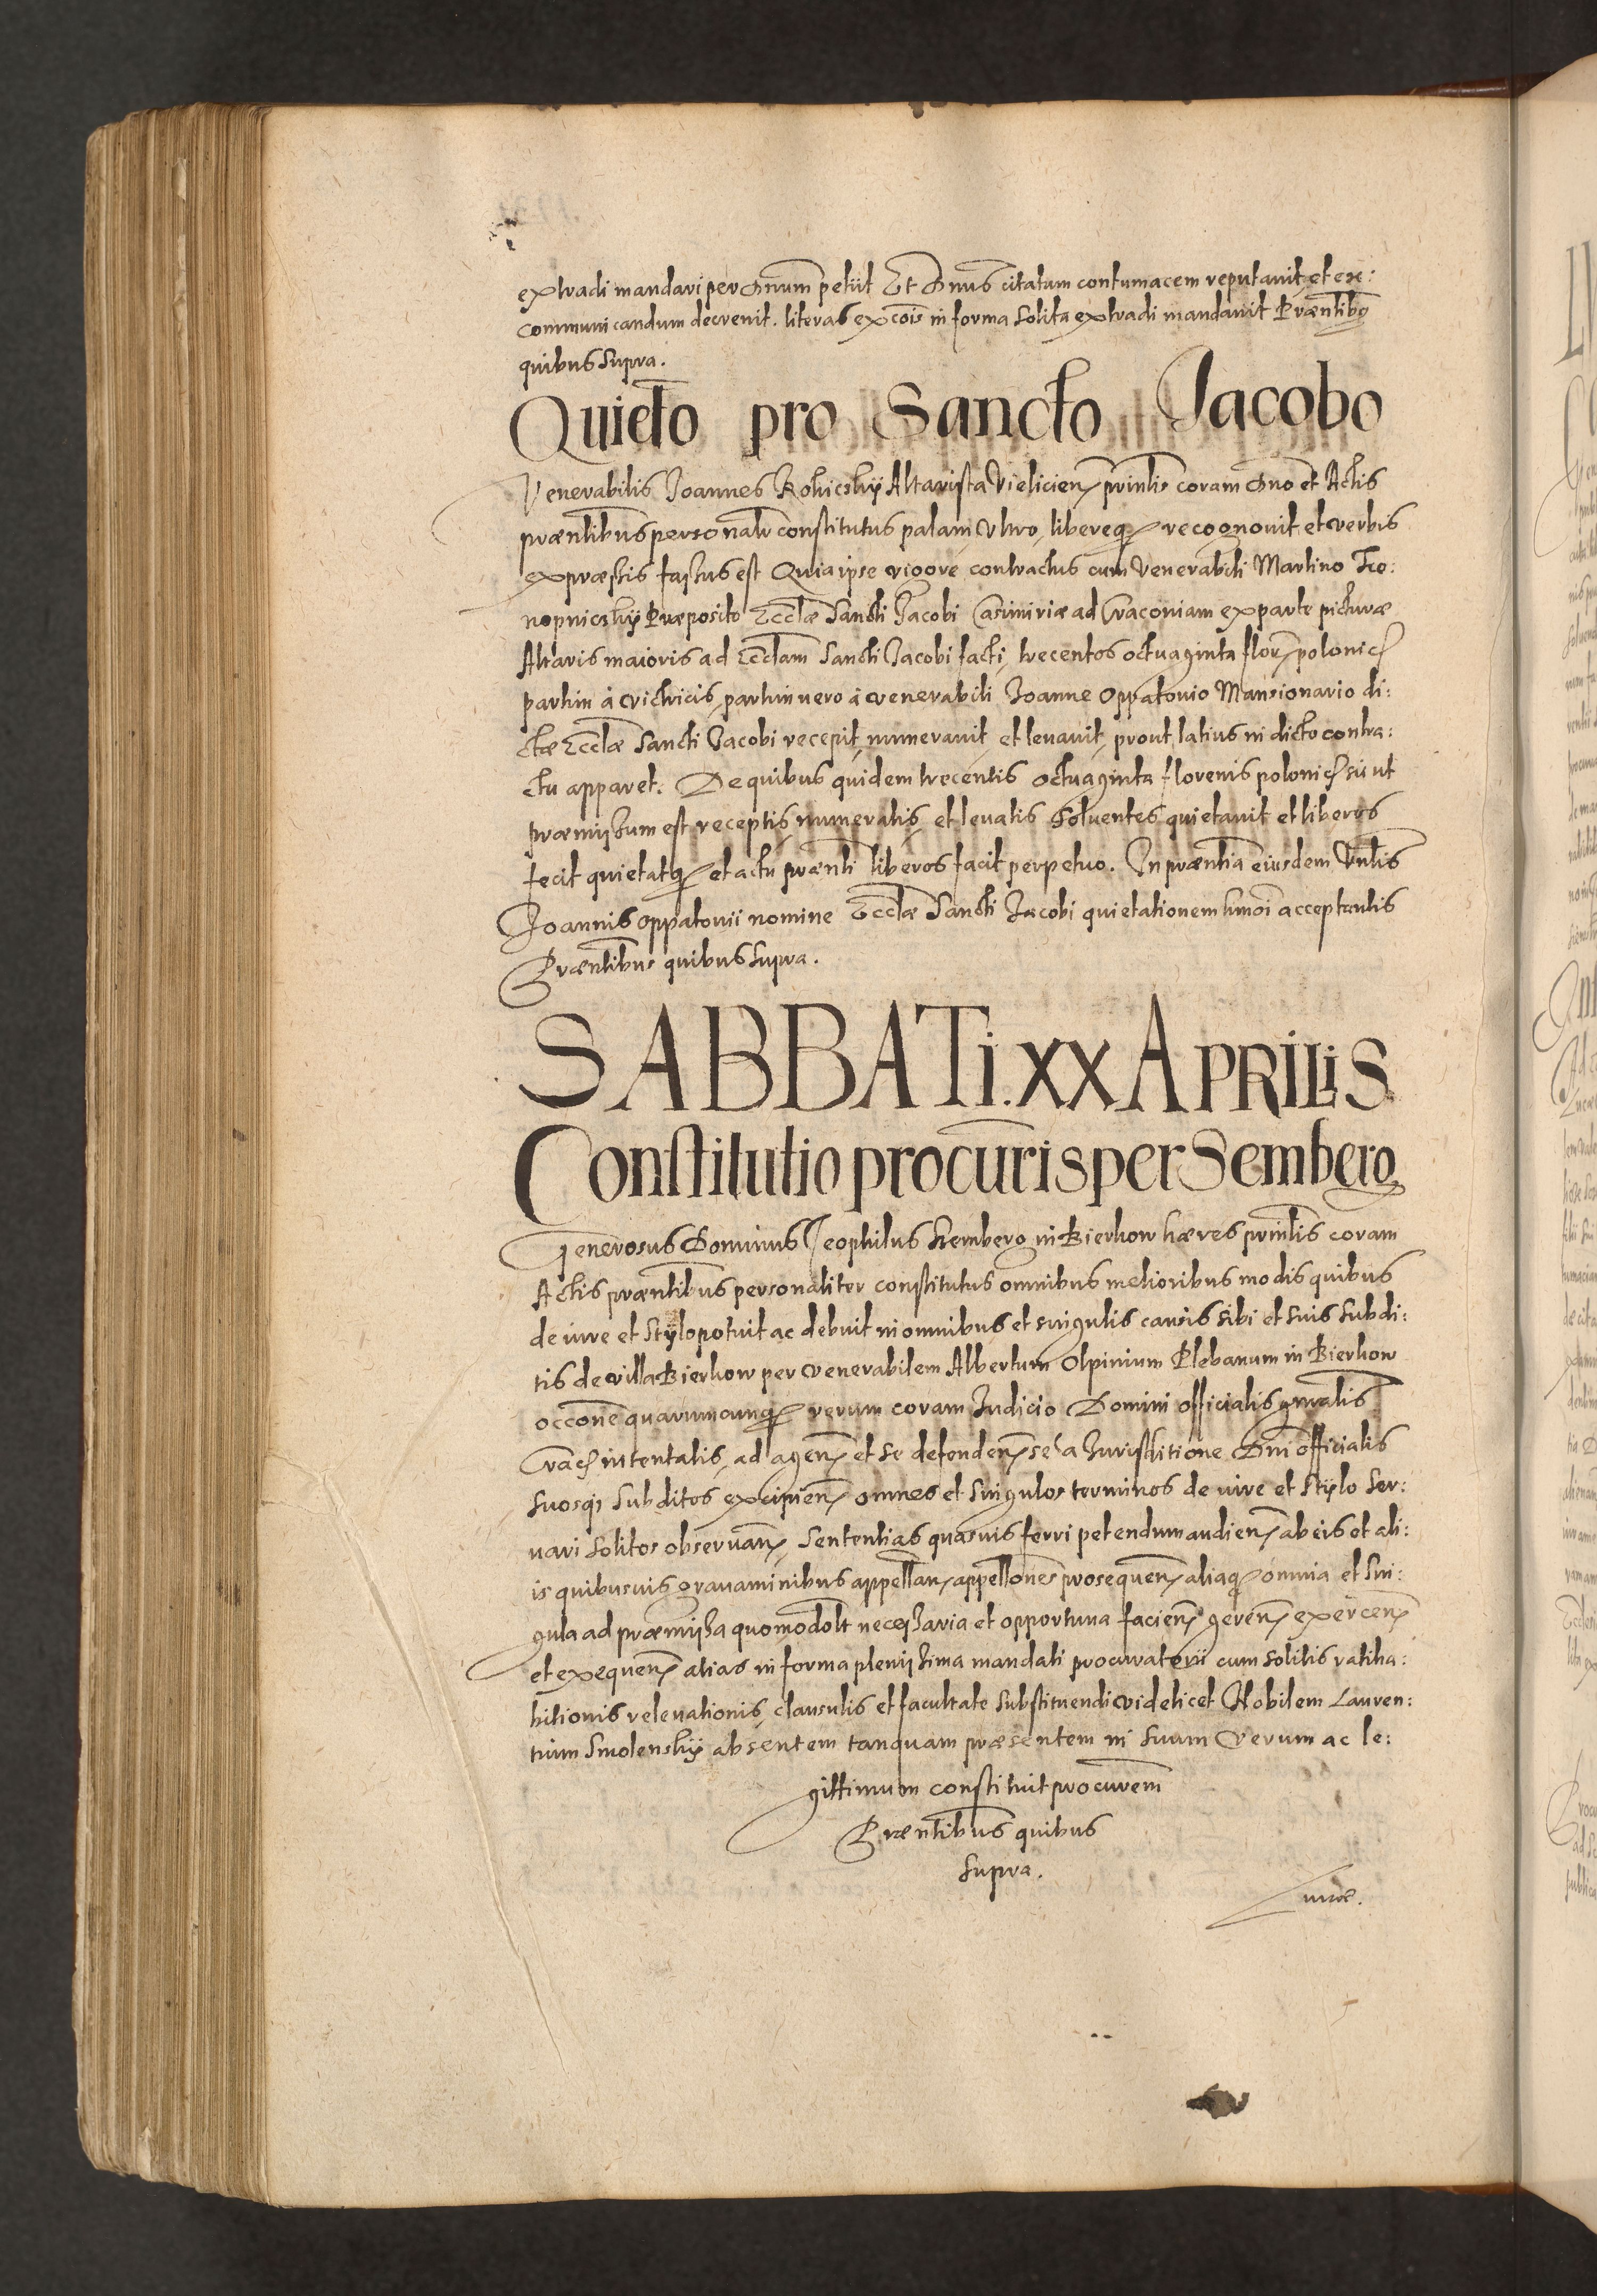 extradi mandari per Dnum petiit Et Dnus citatum contumacem reputauit, et ex:
communicandum decreuit. literas excois in forma solita extradi mandauit Praentibus
quibus supra.
Quieto pro Sancto Jacobo
Venerabilis Joannes Altarista Vieliciens prinlis coram Dno et Actis
praentibus personalr constitutus palam, vltro, libereque recognouit, et verbis
expraessis fassus est Quia ipse vigore contractus cum Venerabili Martino
Praeposito Ecclae Sancti Jacobi Casimiriae ad Cracouiam ex parte picturae
Altaris maioris ad Ecclam Sancti Jacobi facti, trecentos octuaginta floren polonic
partim à vitricis, partim uero à venerabili Joanne Oppatouio Mansionario di:
ctae Ecclae Sancti Jacobi recepit, numerauit, et leuauit, prout latius in dicto contra:
ctu apparet. De quibus quidem trecentis octuaginta florenis polonic sii ut
praemissum est receptis, numeratis, et leuatis Soluentes quietauit et liberos
fecit quietatque et actu praenti liberos facit perpetuo. In praentia eiusdem Vnlis
Joannis Oppatouii nomine Ecclae Sancti Jacobi quietationem hmoi acceptantis
Praentibus quibus supra.
SABBATi. XX APRILiS
Constitutio procuris per Semberg
Generosus Dominus Teophilus Szemberg in Bierkow haeres prinlis coram
Actis praentibus personaliter constitutus omnibus melioribus modis quibus
de iure et Stylo potuit ac debuit in omnibus et singulis causis sibi et suis subdi:
tis de villa Bierkow per venerabilem Albertum Olpinium Plebanum in Bierkow
occone quarumcunque rerum coram Judicio Domini officialis gnralis
Crac intentatis, ad agen et se defenden se a Jurisditione Dni officialis
suosque subditos excipien omnes et singulos terminos de iure et Stylo ser:
uari solitos obseruan, Sententias quasuis ferri petendum audien ab eis et ali:
is quibusuis grauaminibus appellan, appellones prosequen, aliaque omnia et sin:
gula ad praemissa quomodolt necessaria et opportuna facien geren exercen
et exequen alias in forma plenissima mandati procuratorii cum solitis ratiha:
bitionis releuationis, clausulis et facultate substituendi videlicet Nobilem Lauren:
tium Smolenskij absentem tanquam praesentem in suum verum ac le:
gittimum constituit procurem
Praentibus quibus
supra.
Lunae.